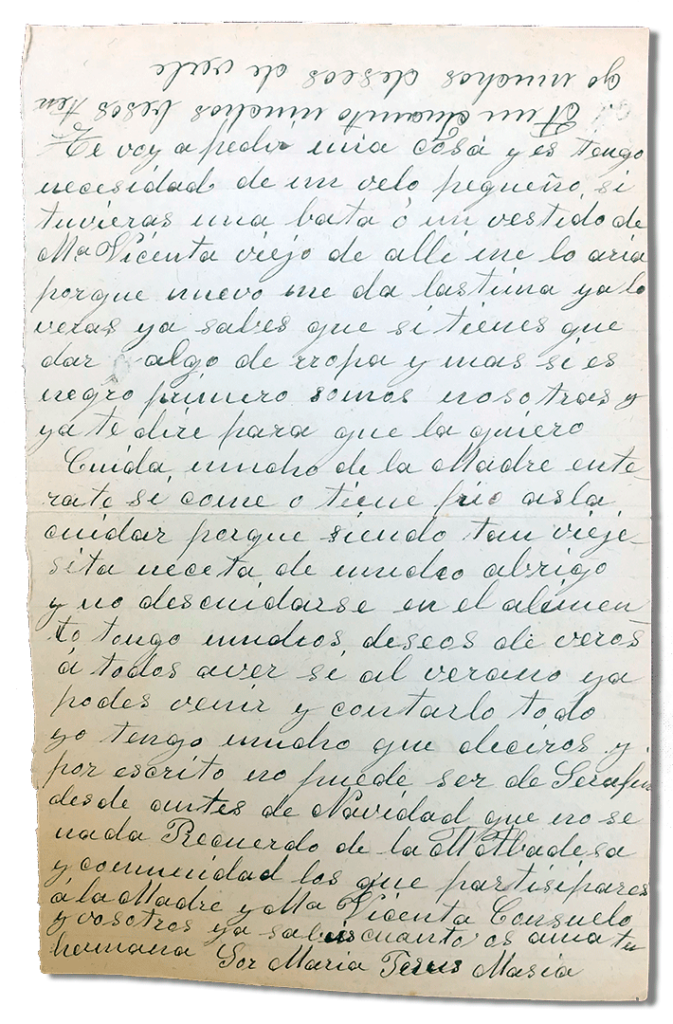 Te voy a pedir una cosa y es tengo
necesidad de un velo pequeño, si
tuvieras una bata ó un vestido de
Mª Vicenta viejo de alli me lo aria
porque nuevo me da lastima ya lo
veras ya sabes que si tienes que
dar algo de rropa y mas si es
negro primero somos nosotras y
ya te dire para que la quiero
Cuida mucho de la Madre ente-
rate si come o tiene frio asla
cuidar porque siendo tan vieje-
sita neceta de mucho abrigo
y no descuidarse en el alimen
to tengo muchos deseos de veros
á todos aver si al verano ya
podes venir y contarlo todo
yo tengo mucho que deciros y
por escrito no puede ser de Serafin
desde antes de Navidad que no se
nada Recuerdo de la M Abadesa
y comunidad los que partisipares
á la Madre y Mª Vicenta Consuelo
y vosotros ya sabeis cuanto os ama tu
hermana Sor Maria Jesus Masia
A un Juanito muchos besos ten
go muchos deseos de verle